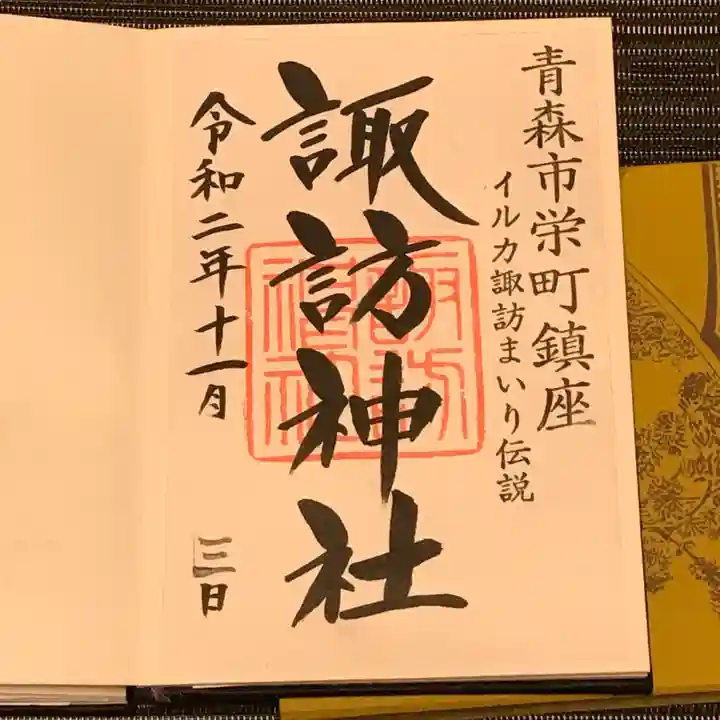 青森市栄町鎮座
イルカ諏訪まいり伝説
諏訪神社
諏訪神社
令和二年十一月 三日